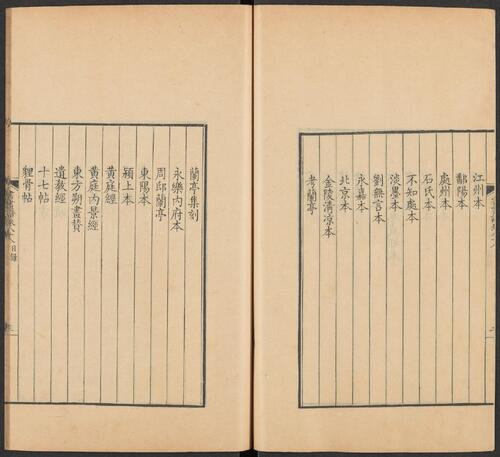 江州本
鄱陽本
處州本
石氏本
不知處本
淡墨本
劉無言本
永嘉本
北京本
金陵清凉本
考蘭亭
蘭亭集刻
永樂內府本
周邸蘭亭
東陽本
潁上本
黃庭經
黃庭內景經
東方朔畫贊
遺教經
十七帖
貍骨帖
目錄